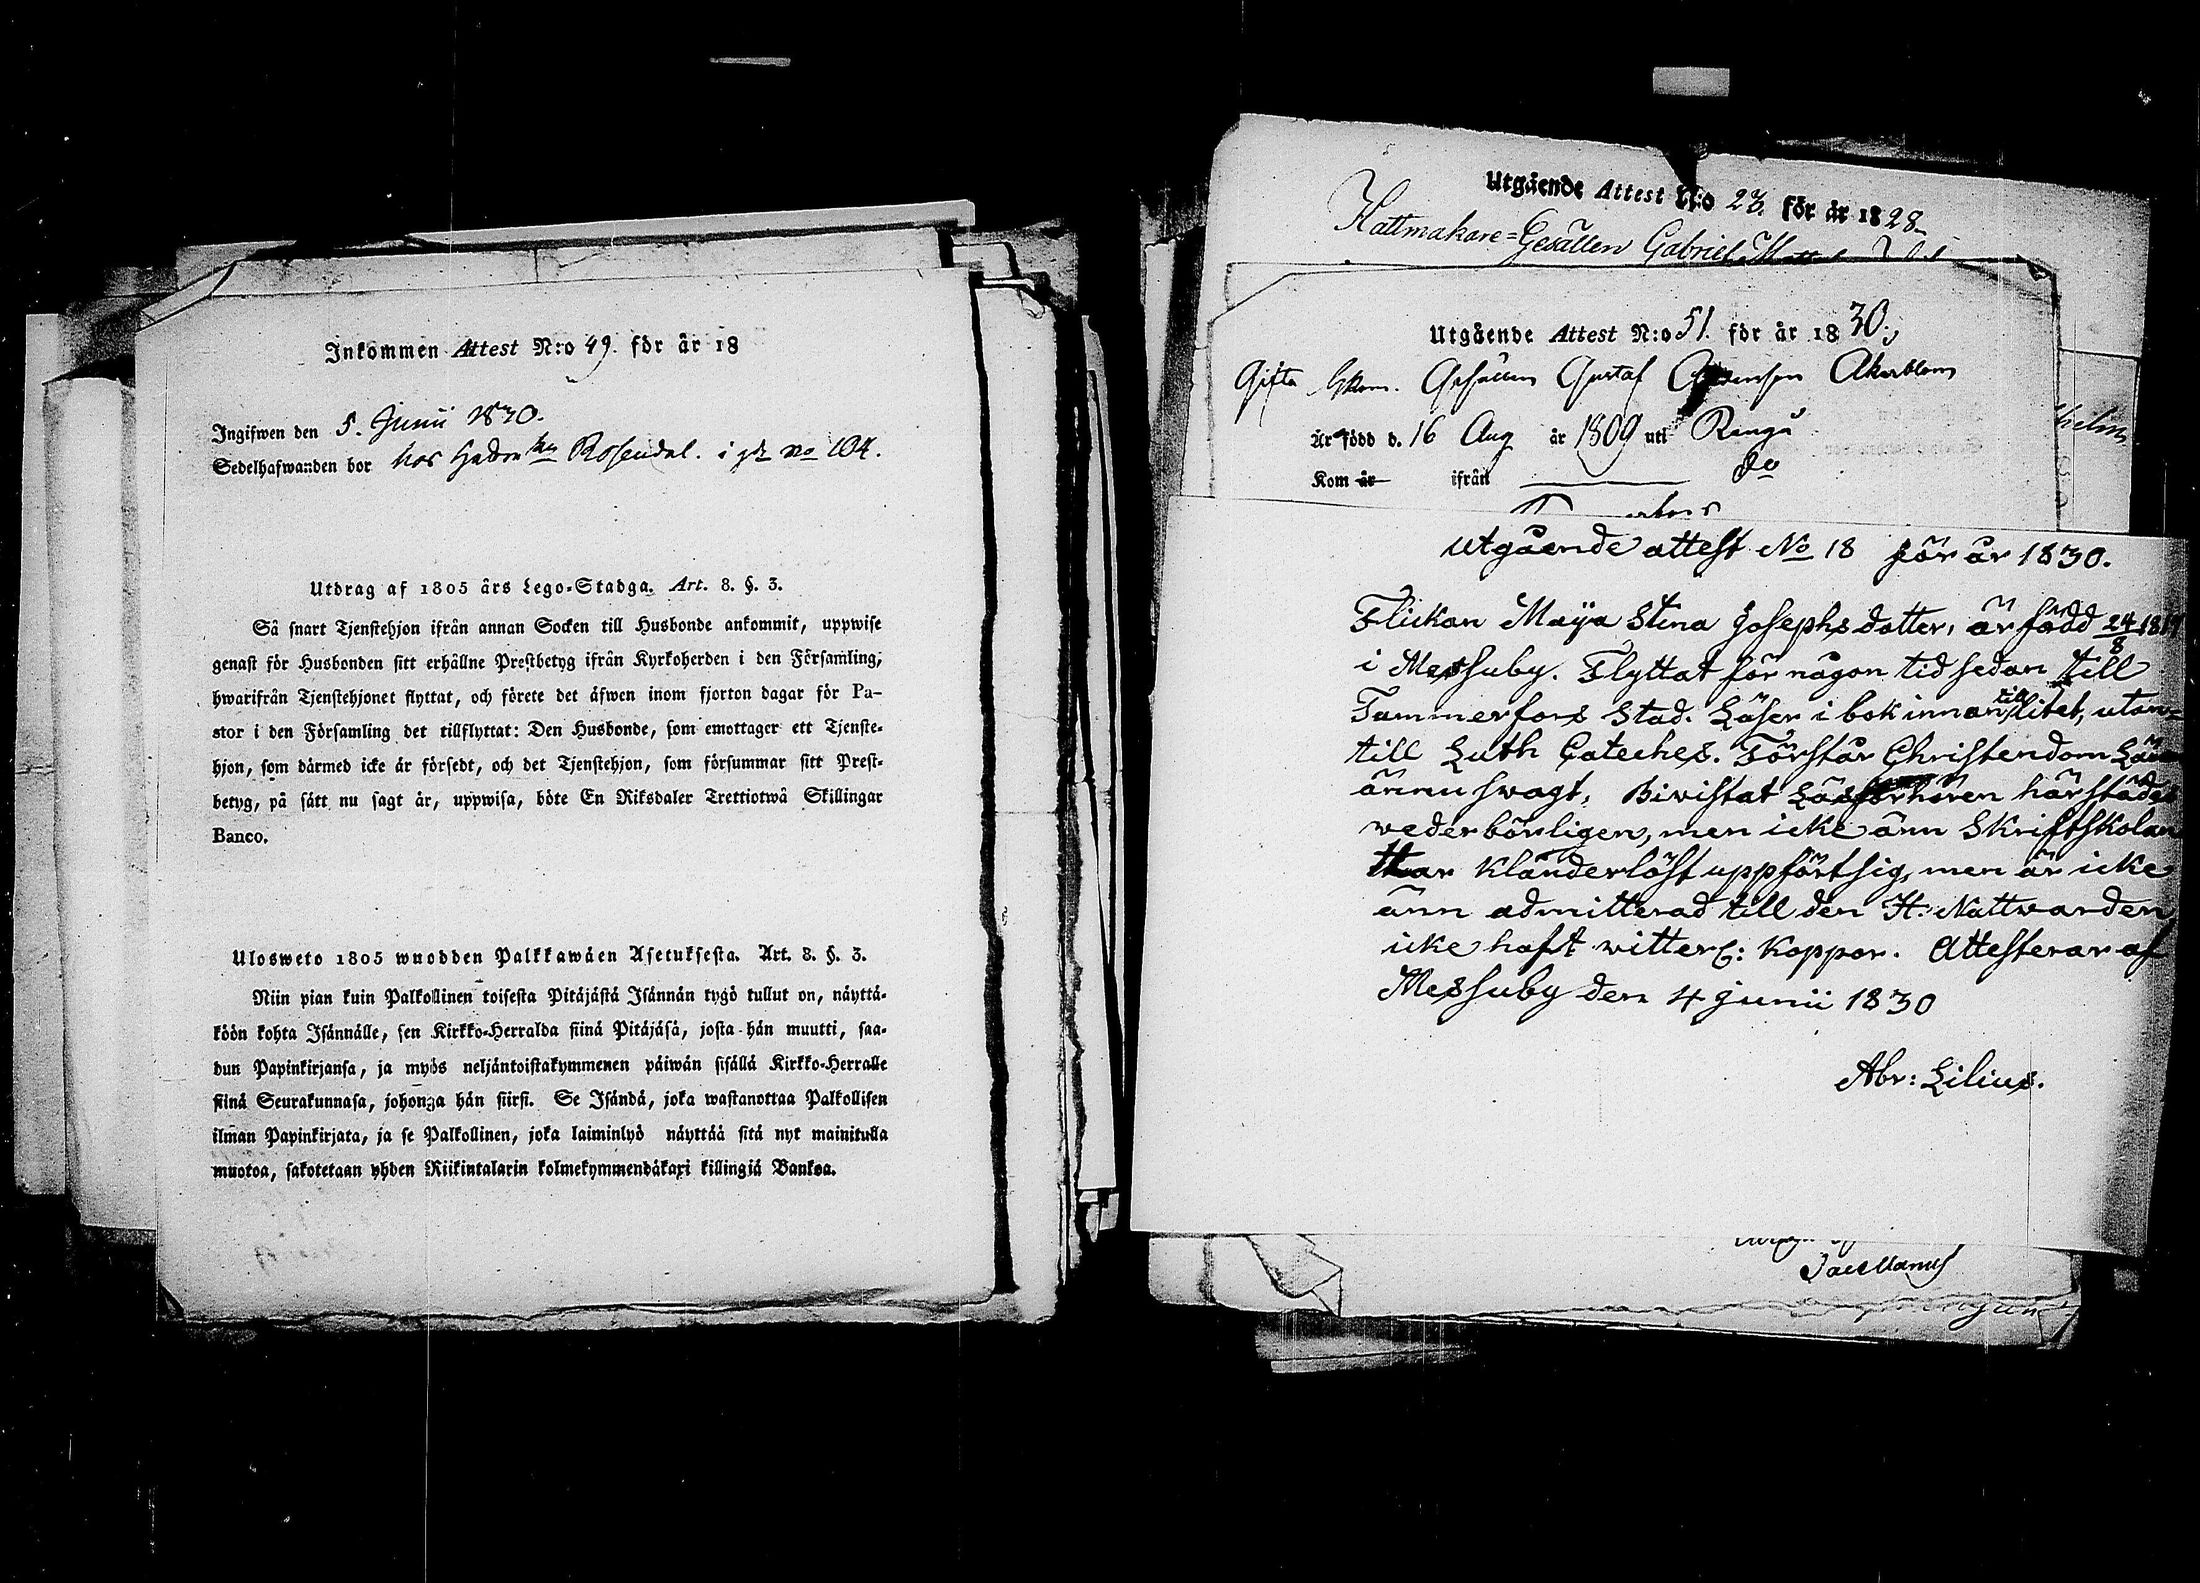 Inkommen Attest N:o 49. för år 18
Ingifwen den 5. Junii 1830.
Sedelhafwanden bor hos Rosendal. i gd No 104.
Utdrag af 1805 års Lego-Stadga. Art. 8. §. 3.
Så snart Tjenstehjon ifrån annan Socken till Husbonde ankommit, uppwise
genast för Husbonden sitt erhållne Prestbetyg ifrån Kyrkoherden i den Församling,
hwarifrån Tjenstehjonet flyttat, och förete det äfwen inom fjorton dagar för Pa-
stor i den Församling det tillflyttat: Den Husbonde, som emottager ett Tjenste-
hjon, som därmed icke är försedt, och det Tjenstehjon, som försummar sitt Prest-
betyg, på sätt nu sagt är, uppwisa, böte En Riksdaler Trettiotwå Skillingar
Banco.
Ulosweto 1805 wuodden Palkkawäen Asetuksesta. Art. 8. §. 3.
Niin pian kuin Palkollinen toisesta Pitäjästä Isännän tygö tullut on, näyttä-
köön kohta Isännälle, sen Kirkko-Herralda siinä Pitäjäsä, josta hän muutti, saa-
dun Papinkirjansa, ja myös neljäntoistakymmenen päiwän sisällä Kirkko-Herralle
siinä Seurakunnasa, johonga hän siirsi. Se Isändä, joka wastanottaa Palkollisen
ilman Papinkirjata, ja se Palkollinen, joka laiminlyö näyttää sitä nyt mainitulla
muotoa, sakotetaan yhden Riikintalarin kolmekymmendäkaxi killingiä Bankoa.
Utgående Attest N:o 23. för år 1828
Hattmakare=Gesällen Gabriel
Utgående Attest N:o 51. för år 1830.
Gifta Gesällen Gustaf Akerblom
Är född d. 16 Aug år 1809 uti
Kom år ifrån do
utgående attest No 18 för år 1830.
Flickan Maija Stina Josephsdotter, är född 24/8 18
i Messuby. Flyttat för någon tid sedan till
Tammerfors Stad. Läser i bok innan till litet, utan=
till Luth Cateches. Förstår Christendom
ännu swagt, Biwistat Läsförhören härstädes
wederbörligen, men icke änn Skriftskolan
Har klanderlöst uppfört sig, men är icke
änn admitterad till den H. Nattwarden
icke haft witterl: koppor. Attesterar af
Messuby den 4 Junii 1830
Abr: Lilius.